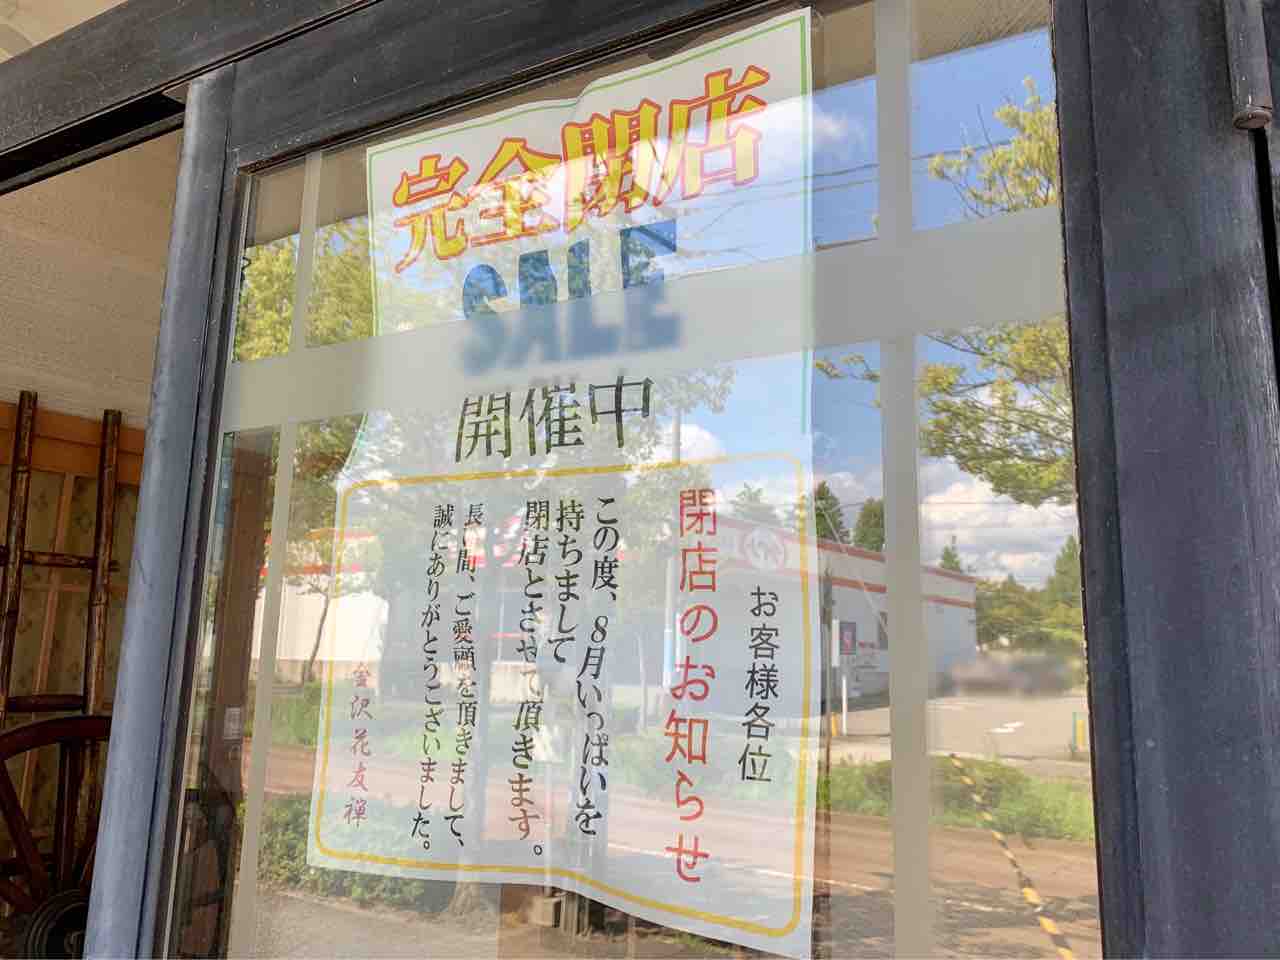 完全閉店
SALE
開催中
お客様各位
閉店のお知らせ
この度、8月いっぱいを
持ちまして
閉店とさせて頂きます。
長い間、ご愛顧を頂きまして、
誠にありがとうございました。
金沢花友禅